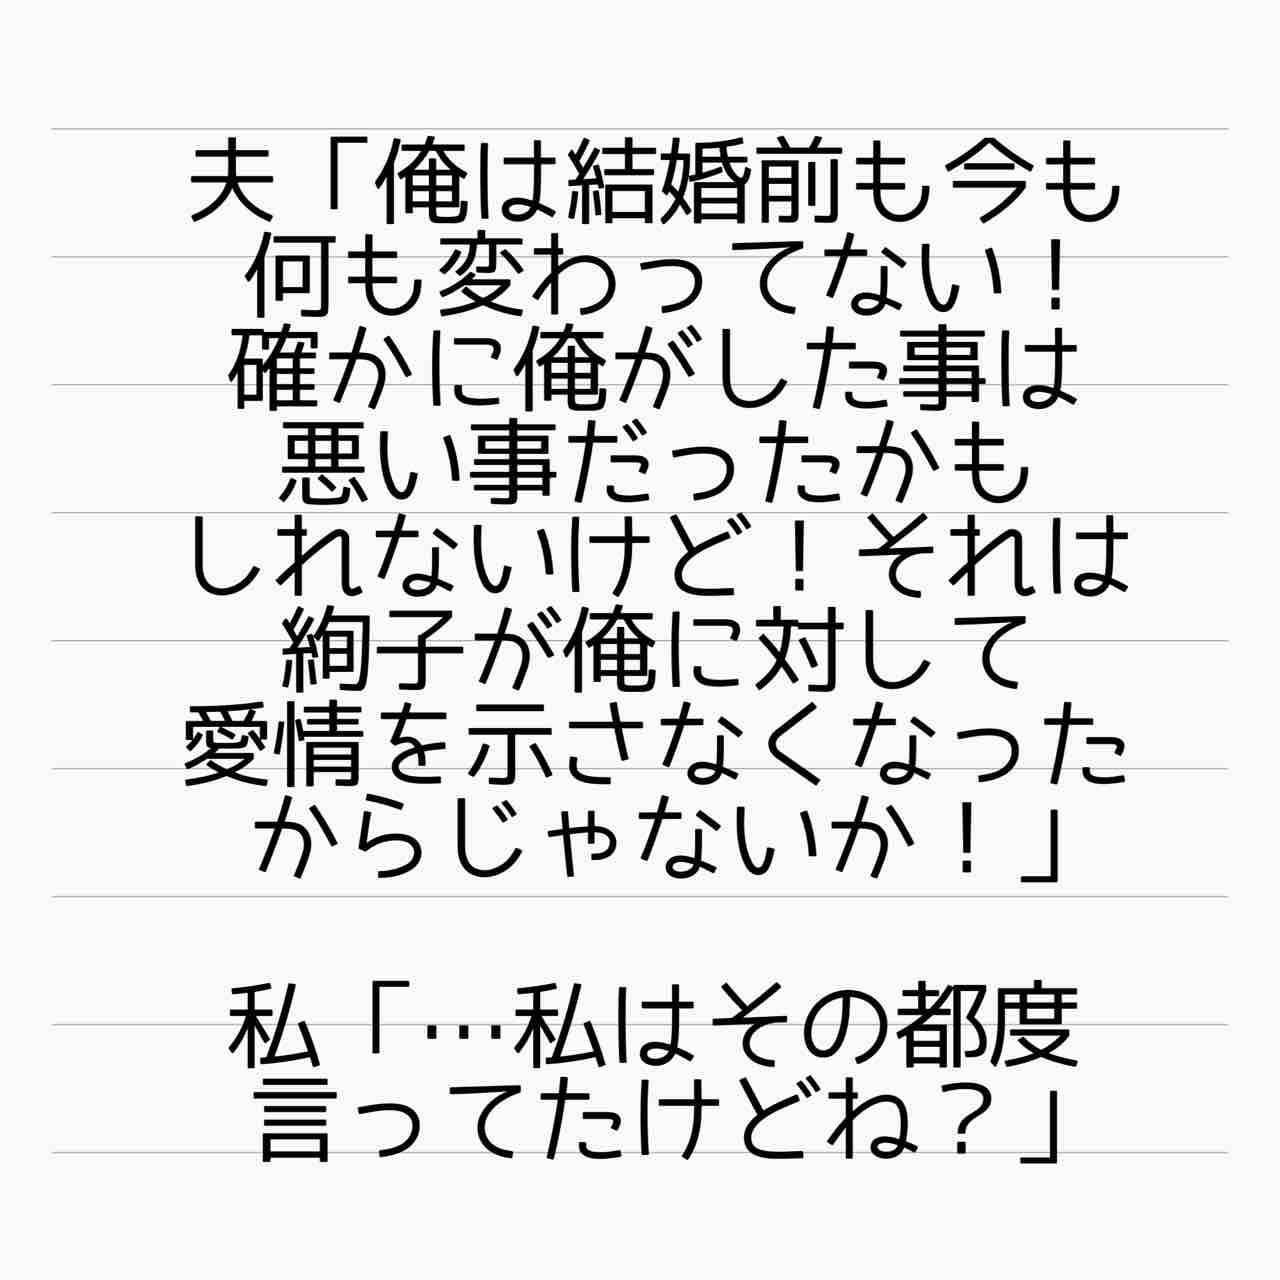 夫「俺は結婚前も今も
何も変わってない！
確かに俺がした事は
悪い事だったかも
しれないけど！それは
絢子が俺に対して
愛情を示さなくなった
からじゃないか！」
私「…私はその都度
言ってたけどね？」